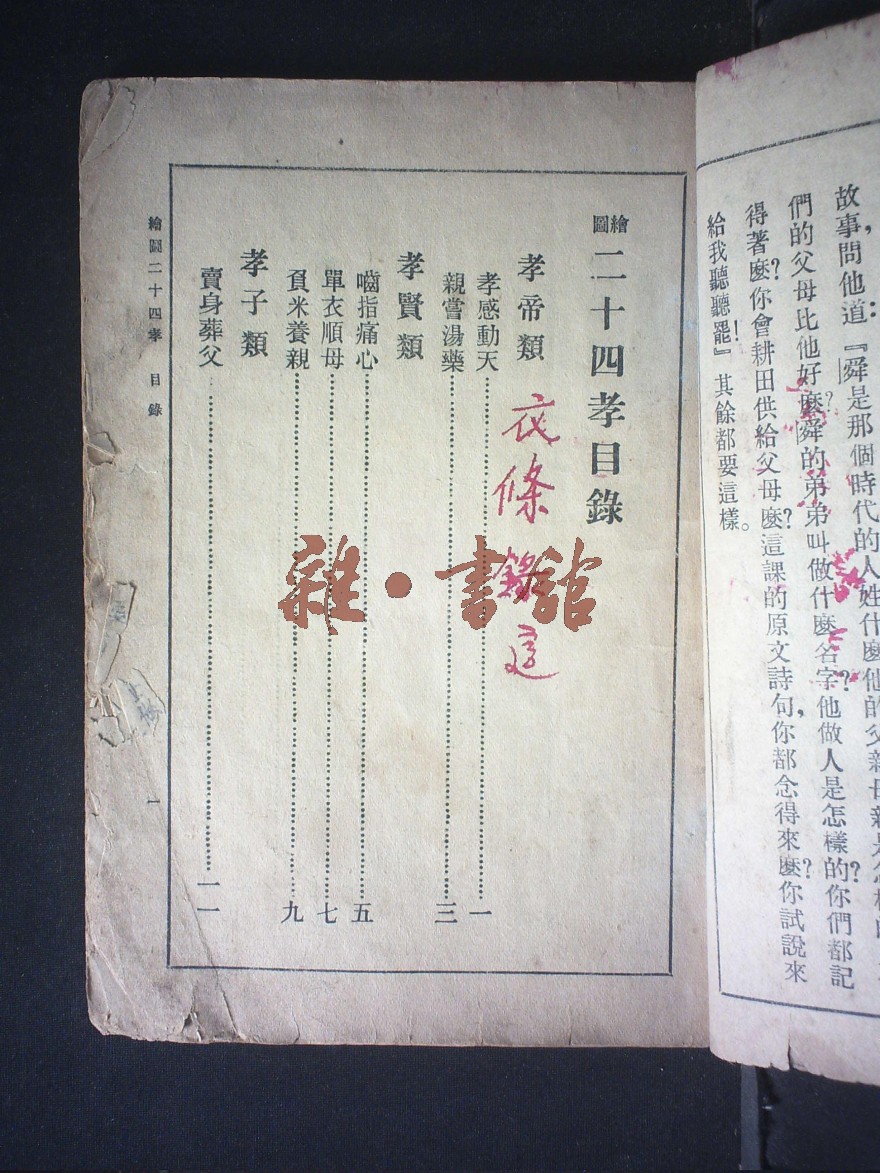 故事問他道：『舜是那個時代的人姓什麼他的父親母親是怎樣的
們的父母比他好麼？舜的弟弟叫做什麼名字？他做人是怎樣的？你們都記
得著麼？你會耕田供給父母麼？這課的原文詩句，你都念得來麼？你試說來
給我聽聽罷！』其餘都要這樣。
繪圖二十四孝目錄
孝帝類
孝感動天……一
親嘗湯藥……三
孝賢類
嚙指痛心……五
單衣順母……七
負米養親……九
孝子類
賣身葬父……一一
繪圖二十四孝 目錄
一
雜·書館